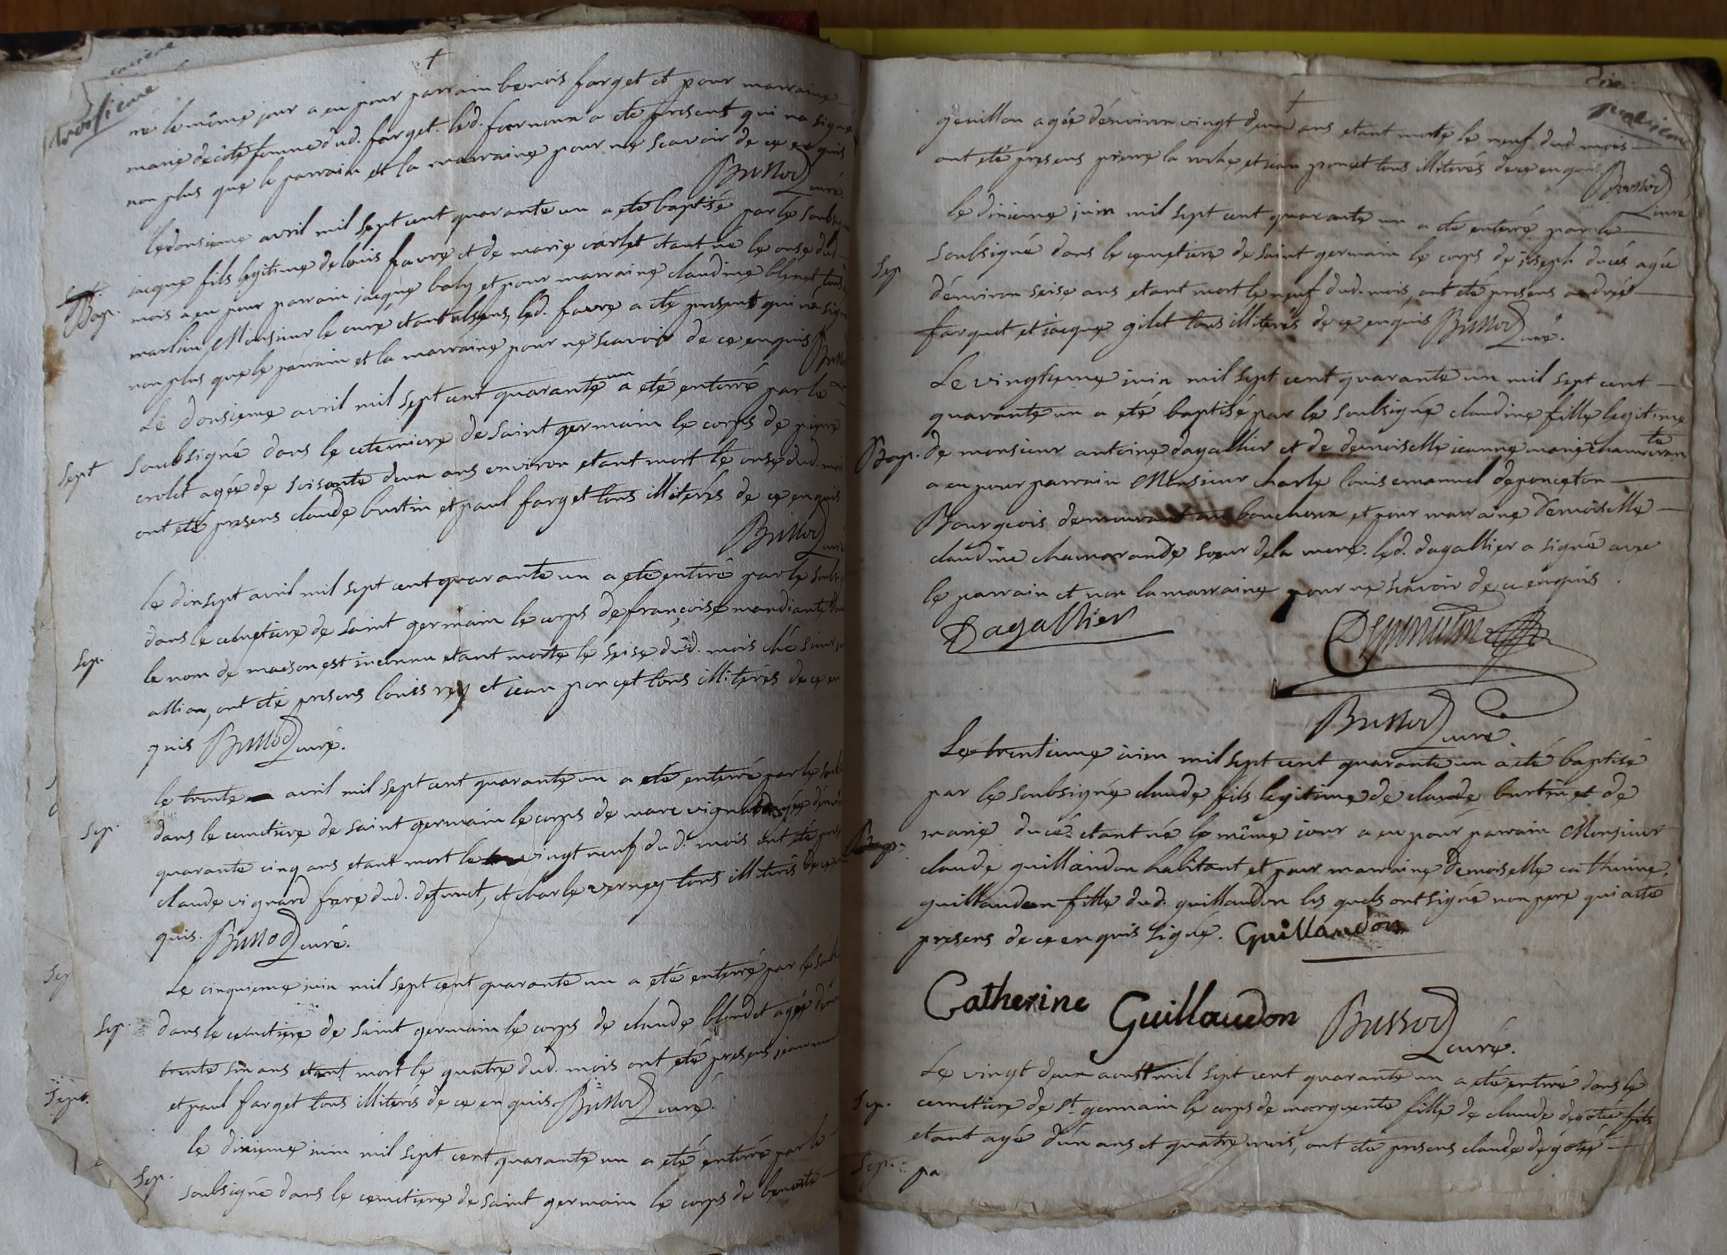 troisieme
né le même jour a eu pour parrain benois farget et pour marraine
marie decôte femme dud. farget. led. fournoux a eté present qui n'a signé
non plus que le parrain et la marraine pour ne scavoir de ce enquis
Bussod curé
Bap.
le donsieme avril mil sept cent quarante un a eté baptisé par le soubsigné
jacque fils legitime de louis favre et de marie carlet etant né le onse dud.
mois a eu pour parrain jacque baly et pour marraine claudine blanet
Monsieur le curé etant absens, led. favre a eté present qui n'a signé
non plus que le parrain et la marraine pour ne scavoir de ce enquis
Le donsieme avril mil sept cent quarante un a eté enterré par le
Sept
soubsigné dans le cemetiere de saint germain le corps de pierre
crolet agée de soisante deux ans environ etant mort le onse dud. mois
ont eté presens claude burtin et paul farget tous illiterés de ce enquis
Bussod curé
le dixsept avril mil sept cent quarante un a eté enteré par le soubs
dans le cemetiere de saint germain le corps de françoise mandiante
Sep.
le nom de maison est inconnu etant morte le seise dud. mois ché
allion, ont eté presens louis rey et jean poncet tous illiterés de ce en
quis Bussod curé.
le trente avril mil sept cent quarante un a eté enterré par le soub
Sep.
dans le cemetiere de saint germain le corps de marc vignard
quarante cinq ans etant mort le vingt neuf dud. mois ont eté pres
claude vignard frere dud. defunct, et charle verney tous illiterés de ce en
quis. Bussod curé.
Le cinquieme juin mil sept cent quarante un a eté enterré par le soub
Sep.
dans le cemetiere de saint germain le corps de claude blondet agée d'en
trente six ans etant mort le quatre dud. mois ont eté presens
et paul farget tous illiterés de ce enquis. Bussod curé.
le dixieme juin mil sept cent quarante un a eté enterré par le
Sep.
soubsigné dans le cemetiere de saint germain le corps de benoite
Sep
Sept.
gouillon agée d'environ vingt deux ans etant morte le neuf dud. mois
ont eté presens pierre la roche et jean poncet tous illiterés de ce enquis
Bussod curé
le dixieme juin mil sept cent quarante un a eté enterré par le
Sep.
soubsigné dans le cemetiere de saint germain le corps de joseph ducés agée
d'environ seise ans etant mort le neuf dud. mois, ont eté presens andré
farguet et jacque gilet tous illiterés de ce enquis Bussod curé.
Le vingtieme juin mil sept cent quarante un mil sept cent
quarante un a eté baptisé par le soubsigné claudine fille legitime
Bap.
de monsieur antoine dagallier et de demoiselle jeanne marie chamoran
a eu pour parrain Monsieur charle louis emanuel deponceton
Bourgeois demeurant au boucheroux et pour marraine demoiselle
claudine chamorande soeur de la mere. led. dagallier a signé avec
le parrain et non la marraine pour ne scavoir de ce enquis.
Dagallier
Bussod curé.
Le trentieme juin mil sept cent quarante un a eté baptisé
par le soubsigné claude fils legitime de claude burtin et de
Bap.
marie ducé. etant né le même jour a eu pour parrain Monsieur
claude guillaudon habitant et pour marraine demoiselle catherine
guillaudon fille dud. guillaudon les quels ont signé non pere qui a eté
presens de ce enquis signé. Guillaudon
Catherine Guillaudon Bussod curé.
Le vingt deux aoust mil sept cent quarante un a eté enterré dans le
Sep.
cemetiere de st. germain le corps de marguerite fille de claude decôte
etant agé d'un ans et quatre mois, ont eté presens claude decôte
Sep.
pa